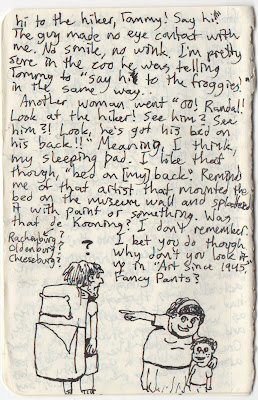 hi to the hiker, Tommy! Say hi!"
The guy made no eye contact with
me. No smile, no wink. I'm pretty
sure in the zoo he was telling
Tommy to "say hi to the froggies"
in the same way..
Another woman went "OO! Randal!
Look at the hiker! See him? See
him?! Look, he's got his bed on
his back!!" Meaning, I think,
my sleeping pad. I like that
though, "bed on [my] back." Reminds
me of that artist that mounted the
bed on the museum wall and
it with paint or something. Was
that de Kooning? I don't remember.
Rachenburg?
Oldenburg?
Cheeseburg?
I bet you do though
Why don't you look it
up in "Art Since 1945"
Fancy Pants?
?